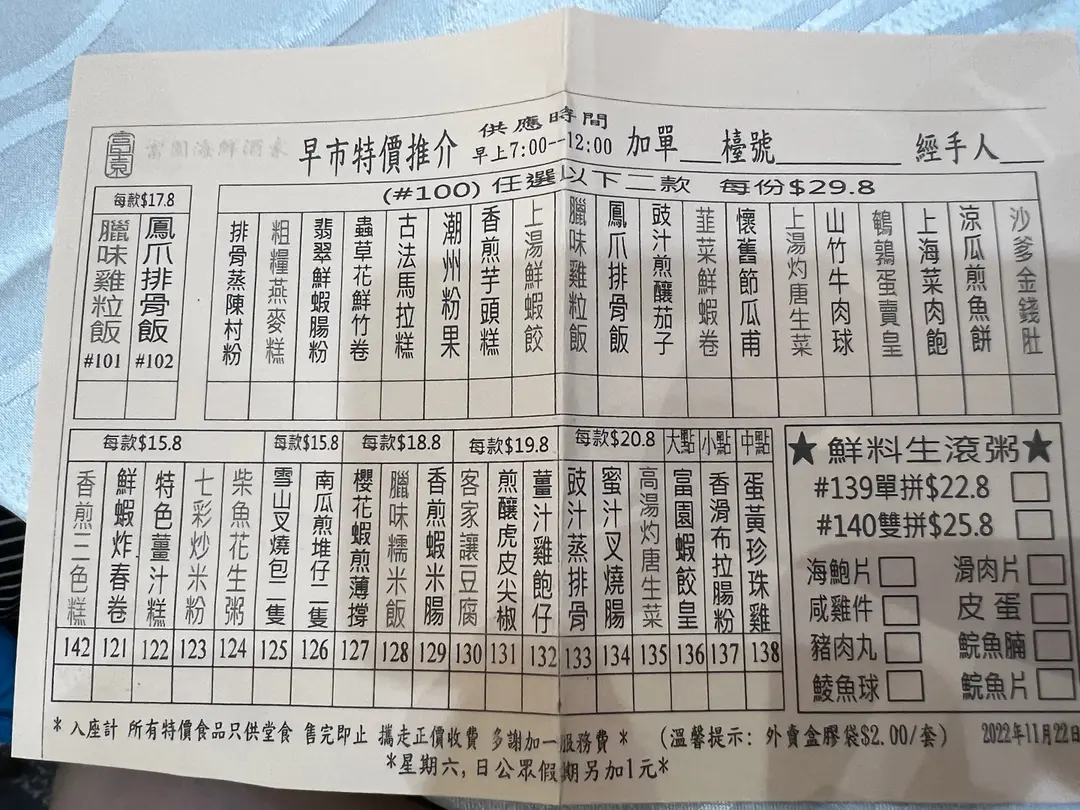 富園
富園海鮮酒家
早市特價推介
供應時間
早上7:00--12:00
加單__檯號________ 經手人__
每款$17.8
臘味雞粒飯
#101
鳳爪排骨飯
#102
(#100) 任選以下二款 每份$29.8
排骨蒸陳村粉
粗糧燕麥糕
翡翠鮮蝦腸粉
蟲草花鮮竹卷
古法馬拉糕
潮州粉果
香煎芋頭糕
上湯鮮蝦餃
臘味雞粒飯
鳳爪排骨飯
豉汁煎釀茄子
韮菜鮮蝦卷
懷舊節瓜甫
上湯灼唐生菜
山竹牛肉球
鵪鶉蛋賣皇
上海菜肉飽
涼瓜煎魚餅
沙爹金錢肚
每款$15.8
香煎三色糕
142
鮮蝦炸春卷
121
特色薑汁糕
122
七彩炒米粉
123
柴魚花生粥
124
每款$15.8
雪山叉燒包二隻
125
南瓜煎堆仔二隻
126
每款$18.8
櫻花蝦煎薄撐
127
臘味糯米飯
128
香煎蝦米腸
129
每款$19.8
客家讓豆腐
130
煎釀虎皮尖椒
131
薑汁雞飽仔
132
每款$20.8
豉汁蒸排骨
133
蜜汁叉燒腸
134
高湯灼唐生菜
135
大點
富園蝦餃皇
136
小點
香滑布拉腸粉
137
中點
蛋黃珍珠雞
138
★鮮料生滾粥★
#139單拼$22.8
#140雙拼$25.8
海鮑片 滑肉片
咸雞件 皮蛋
豬肉丸 鯇魚腩
鯪魚球 鯇魚片
* 入座計 所有特價食品只供堂食 售完即止 攜走正價收費 多謝加一服務費 * (溫馨提示: 外賣盒膠袋$2.00/套) 2022年11月22日
*星期六,日公眾假期另加1元*